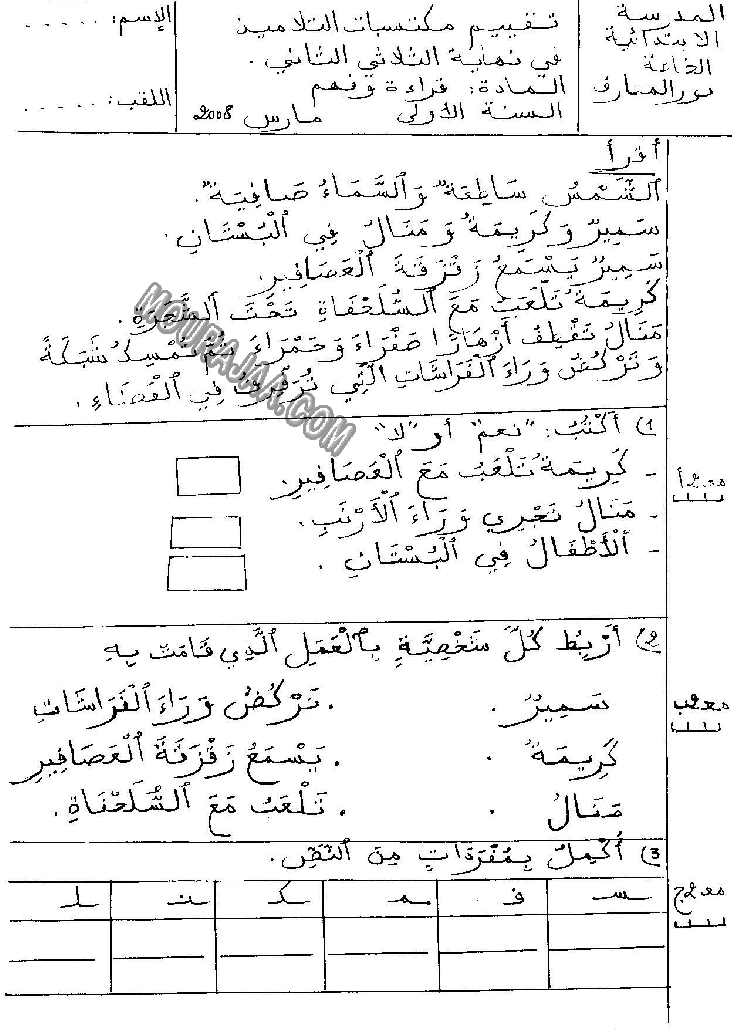 المدرسة
الابتدائية
الخاصة
نور المعارف
تقييم مكتسبات التلاميذ
في نهاية الثلاثي الثاني.
المادة: قراءة وفهم
السنة الأولى مارس 2008
الإسم: .....
اللقب: .....
أقرأ
الشَّمْسُ سَاطِعَةٌ وَالسَّمَاءُ صَافِيَةٌ.
سَمِيرٌ وَكَرِيمَةُ وَمَنَالُ فِي الْبُسْتَانِ.
سَمِيرٌ يَسْمَعُ زَقْزَقَةَ الْعَصَافِيرِ.
كَرِيمَةُ تَلْعَبُ مَعَ السُّلَحْفَاةِ تَحْتَ الشَّجَرَةِ.
مَنَالُ تَقْطِفُ أَزْهَارًا صَفْرَاءَ وَحَمْرَاءَ ثُمَّ تُمْسِكُ شَبَكَةً
وَتَرْكُضُ وَرَاءَ الْفَرَاشَاتِ الَّتِي تُرَفْرِفُ فِي الْفَضَاءِ.
MOURAJAA.COM
1) أَكْتُبُ: "نعم" أو "لا"
- كَرِيمَةُ تَلْعَبُ مَعَ الْعَصَافِيرِ.
- مَنَالُ تَجْرِي وَرَاءَ الْأَرْنَبِ.
- الْأَطْفَالُ فِي الْبُسْتَانِ.
مع2أ
2) أَرْبِطُ كُلَّ شَخْصِيَّةٍ بِالْعَمَلِ الَّذِي قَامَتْ بِهِ
سَمِيرٌ . . تَرْكُضُ وَرَاءَ الْفَرَاشَاتِ
كَرِيمَةُ . . يَسْمَعُ زَقْزَقَةَ الْعَصَافِيرِ
مَنَالُ . . تَلْعَبُ مَعَ السُّلَحْفَاةِ.
مع2ب
3) أُكْمِلُ بِمُفْرَدَاتٍ مِنَ النَّصِّ.
مع2ج
سـ فـ مـ كـ نـ لـ